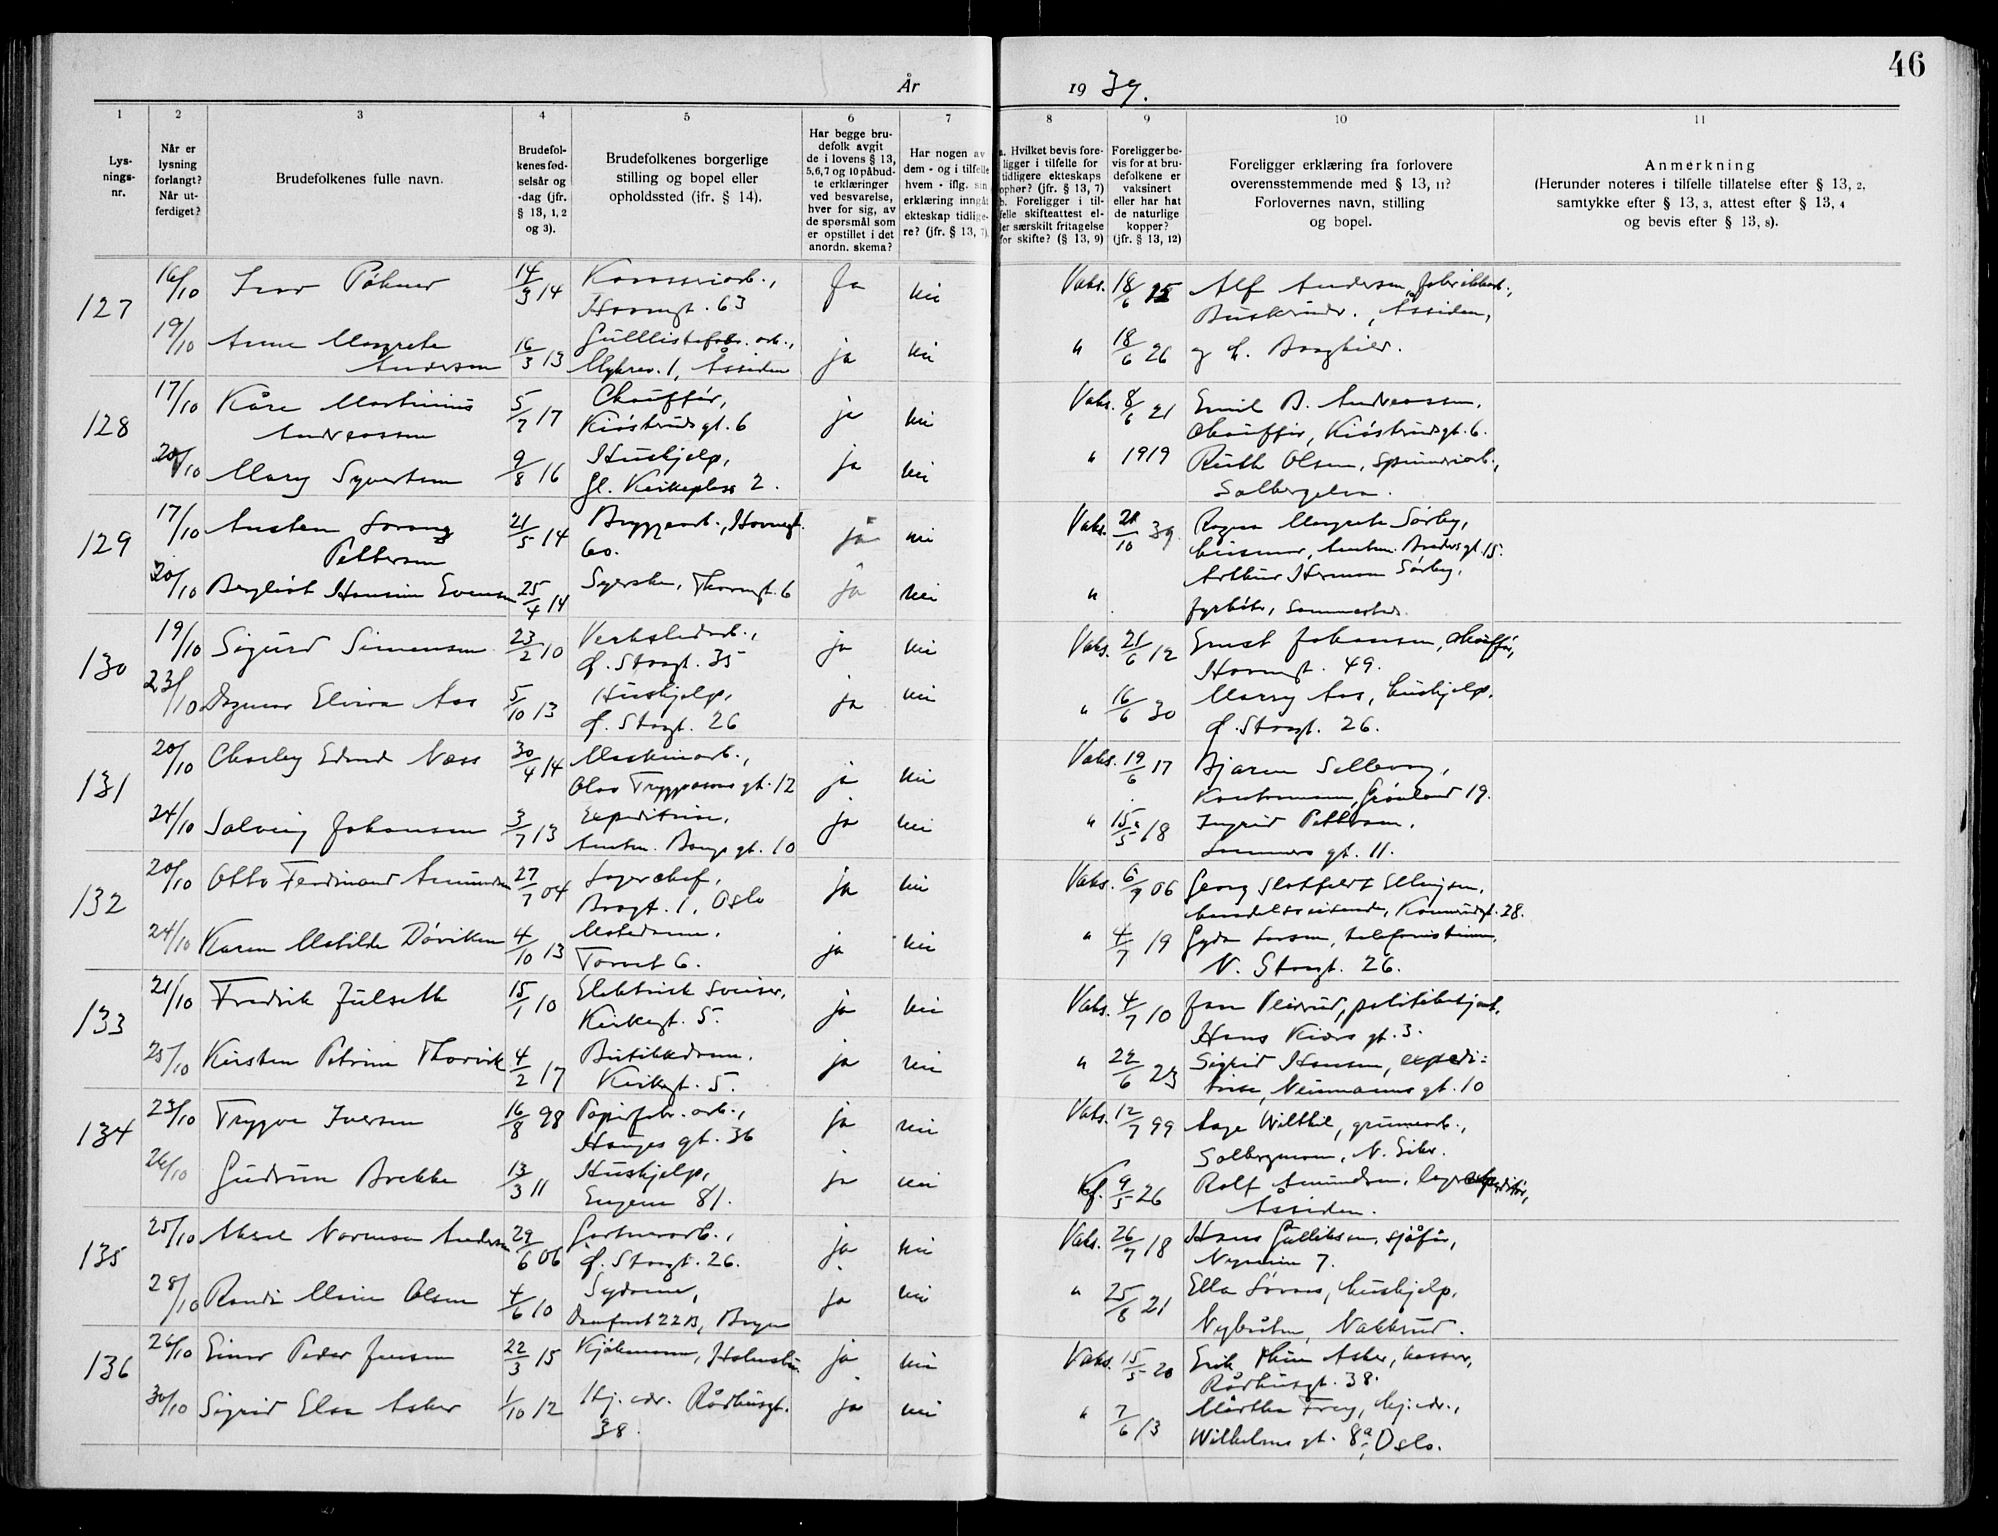 46
År 1939.
1 2 3 4 5 6 7 8 9 10 11
Lys-
nings-
nr.
Når er
lysning
forlangt?
Når ut-
ferdiget?
Brudefolkenes fulle navn.
Brudefol-
kenes fød-
selsår og
-dag (jfr.
§ 13, 1, 2
og 3).
Brudefolkenes borgerlige
stilling og bopel eller
opholdssted (jfr. § 14).
Har begge bru-
defolk avgit
de i lovens § 13,
5,6,7 og 10 påbud-
te erklæringer
ved besvarelse,
hver for sig, av
de spørsmål som
er opstillet i det
anordn. skema?
Har nogen av
dem - og i tilfelle
hvem - iflg. sin
erklæring inngåt
ekteskap tidlige-
re? (jfr. § 13, 7).
a. Hvilket bevis fore-
ligger i tilfelle for
tidligere ekteskaps
ophør? (jfr. § 13, 7)
b. Foreligger i til-
felle skifteattest el-
ler særskilt fritagelse
for skifte? (§ 13, 9)
Foreligger be-
vis for at bru-
defolkene er
vaksinert
eller har hat
de naturlige
kopper?
(jfr. § 13, 12)
Foreligger erklæring fra forlovere
overensstemmende med § 13, 11?
Forlovernes navn, stilling
og bopel.
Anmerkning
(Herunder noteres i tilfelle tillatelse efter § 13, 2,
samtykke efter § 13, 3, attest efter § 13, 4
og bevis efter § 13, 8).
127 16/10 14/3 14 Havnegt. 63 Ja nei Vaks. 18/6 15 Alf Andersen, fabrikkarb.,
Buskerudv., Åssiden,
19/10 Anne Margrete
Andersen 16/3 13 Gullistefabr. arb.,
Myhrev. 1, Åssiden ja nei " 18/6 26 og h. Borghild.
128 17/10 Kåre Martinius
Andreassen 5/7 17 Chauffør,
Kiøsterudsgt. 6 ja nei Vaks. 8/6 21 Emil B. Andreassen,
chauffør, Kiøsterudsgt. 6.
20/10 Mary Syvertsen 9/8 16 Hushjelp,
Gl. Kirkeplass 2. ja nei " 1919 Ruth Olsen, spinneriarb.,
Solbergelva.
129 17/10 Pettersen 21/5 14 Bryggearb., Havnegt.
60. ja nei Vaks. 21/10 39. Ragna Margrete Sørby,
husmor, 15.
20/10 Bergliot Evensen 25/4 14 Syerske, 6 ja nei " Arthur Herman Sørby,
fyrbøter,
130 19/10 Sigurd Simensen 23/2 10 Verkstedarb.,
Ø. Storgt. 35 ja nei Vaks. 21/6 12 Ernst Johansen, chauffør,
Havnegt. 49.
23/10 Dagmar Elvira Aas 5/10 13 Hushjelp,
Ø. Storgt. 26 ja nei " 16/6 30 Marry Aas, hushjelp,
Ø. Storgt. 26.
131 20/10 Charley Edvind Næss 30/4 14 Maskinarb.,
Olav Tryggvasons gt. 12 ja nei Vaks. 19/6 17 Bjarne
Kontormann, Grønland 19.
24/10 Solveig Johansen 3/7 13 Expeditrise,
10 ja nei " 15/5 18 Ingrid Pettersen,
gt. 11.
132 20/10 Otto Ferdinand Amundsen 27/7 04 Lagerchef,
1, Oslo ja nei Vaks. 6/7 06 Georg Ellingsen,
handelsreisende, 28.
24/10 Karen Matilde Døviken 4/10 13 Motedame,
Torvet 6. ja nei " 4/7 19 Gyda Larsen, telefonistinne,
N. Storgt. 26.
133 21/10 Fredrik Julseth 15/1 10 Elektrisk sveiser,
Kirkegt. 5. ja nei Vaks. 4/7 10 politibetjent,
Hans Kiærs gt. 3.
25/10 Kirsten Petrine Thorvik 4/2 17 Butikkdame,
Kirkegt. 5. ja nei " 22/6 23 Sigrid Hansen, expedi=
trise, Neumanns gt. 10
134 23/10 Trygve Iversen 16/8 98 Papirfabr. arb.,
Hauges gt. 36 ja nei Vaks. 12/7 99 Aage Wilthil, grubearb.,
Solbergmoen, N. Eiker.
26/10 Gudrun Brekke 13/3 11 Hushjelp,
Engene 81. ja nei 9/5 26 Rolf Amundsen, lagerekspeditør,
Åssiden.
135 25/10 Andersen 29/6 06 Gartnerarb.,
Ø. Storgt. 26. ja nei Vaks. 26/7 18 Hans Gulliksen, sjåfør,
7.
28/10 Randi Marie Olsen 4/6 10 Sydame,
22 B, Bergen ja nei " 25/8 21 Ella hushjelp,
Nakkerud.
136 26/10 Einar Peder Jensen 22/3 15 Kjøkmann, Holmsbu ja nei Vaks. 15/5 20 Erik Thun Asker, kasser,
Rådhusgt. 38.
30/10 Sigrid Elsa Asker 1/10 12 Hj. vær. Rådhusgt.
38. ja nei " 7/6 13 Märtha Frey, hj. vær.,
Wilhelms gt. 8a, Oslo.